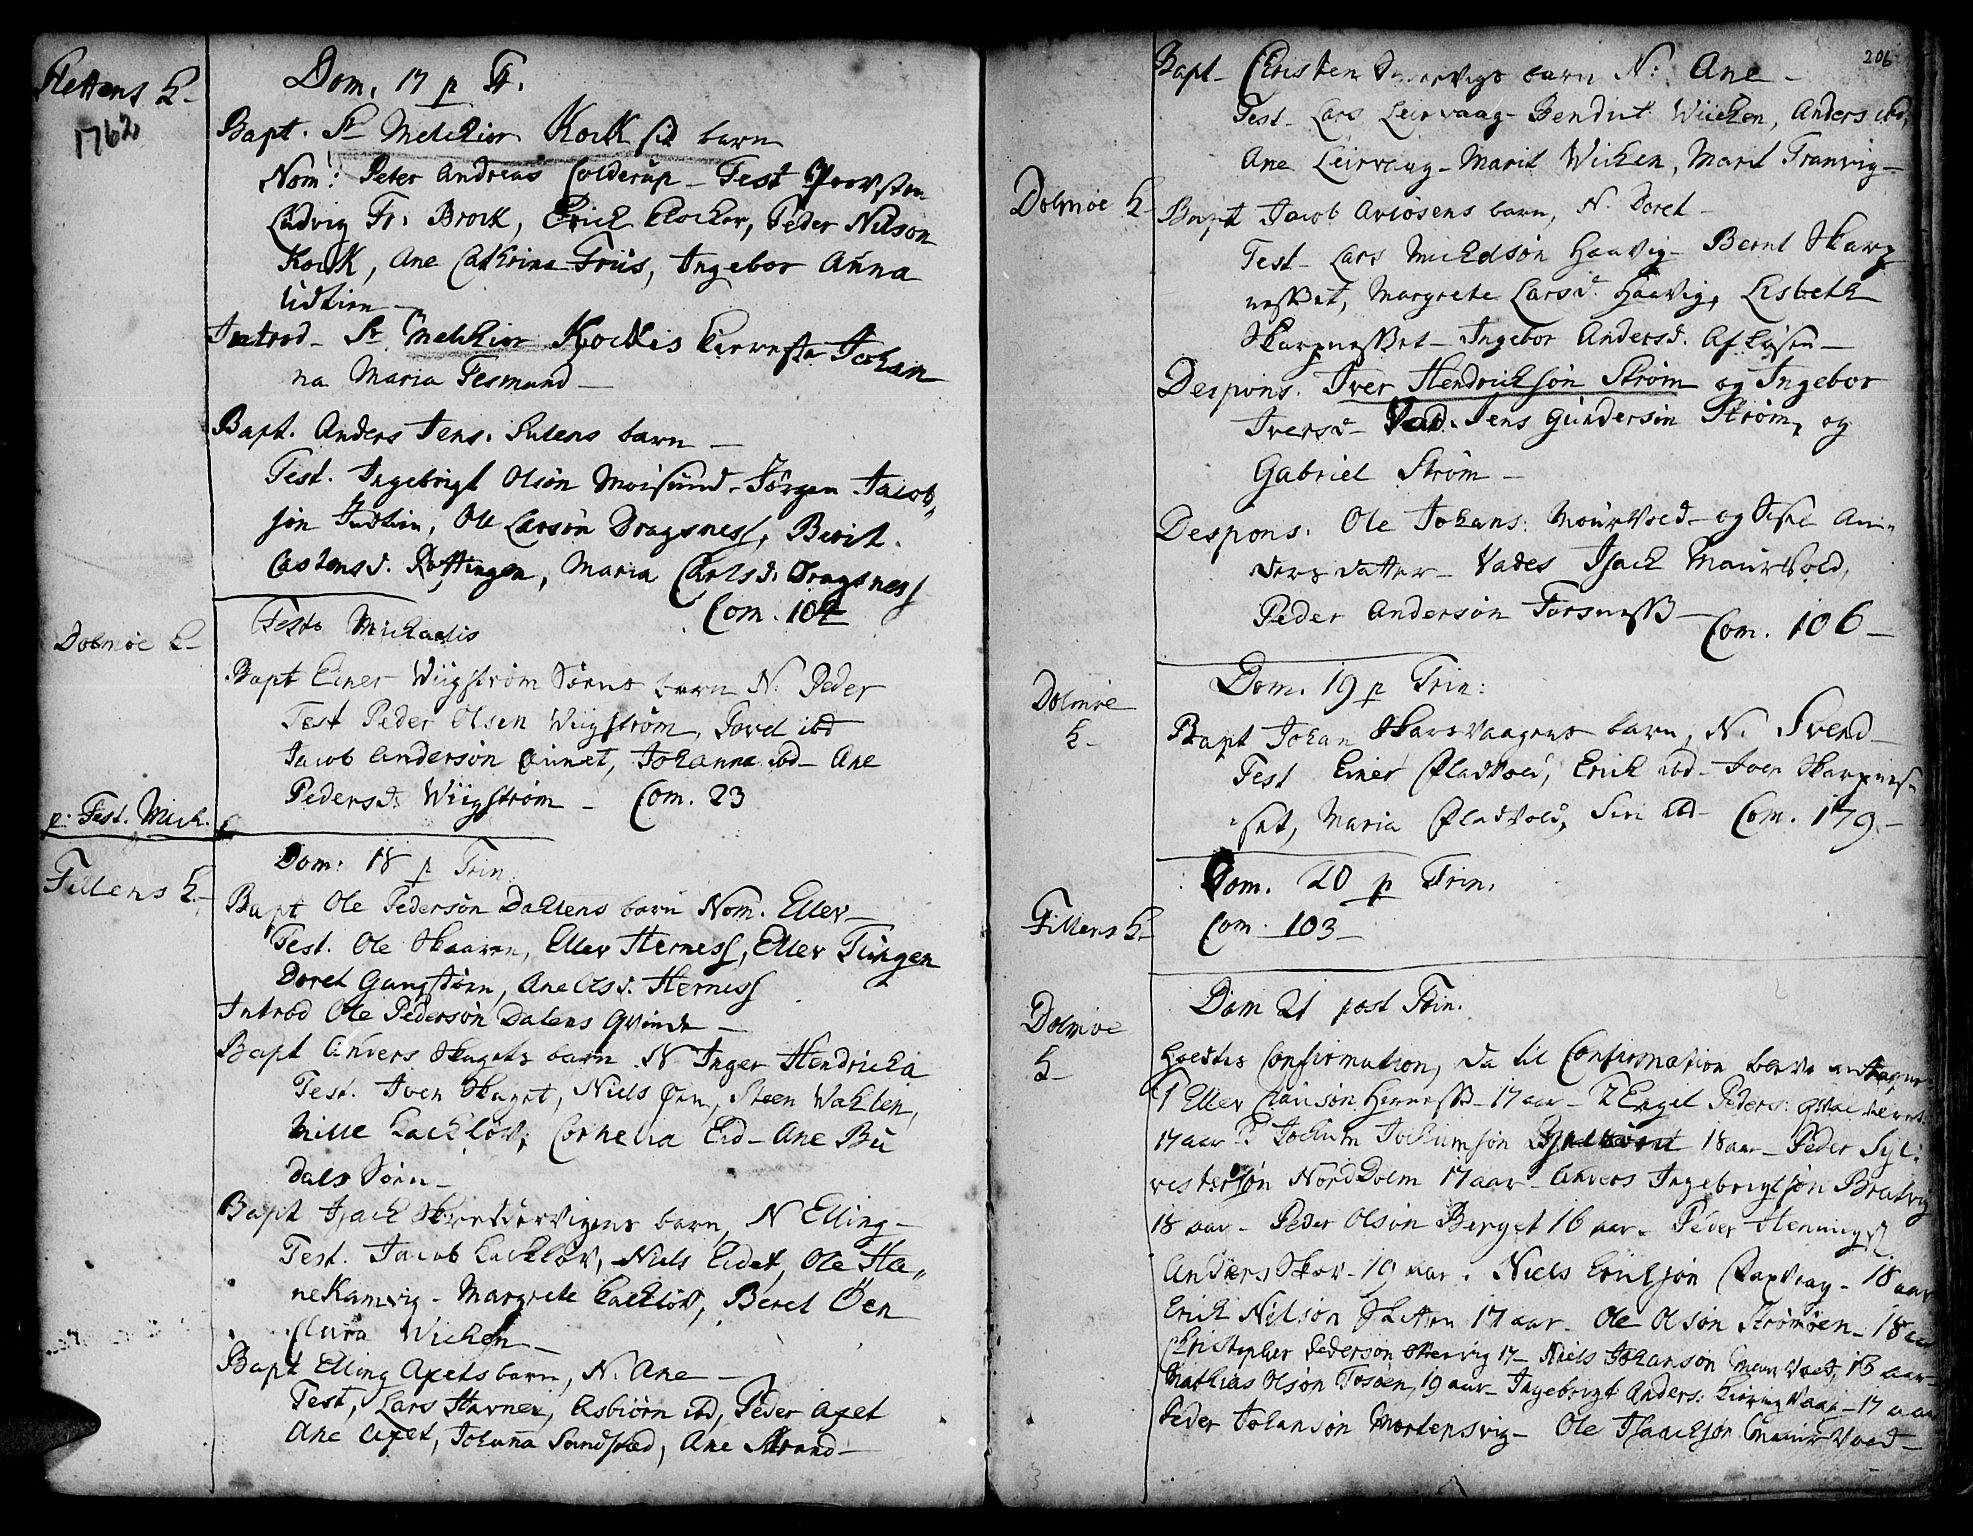 Slettens K-
1762
Dom. 17 p Tr.
Bapt. Sr Melchior Kock sit barn
Nom: Peter Andreas Colderup - Test Provsten
Ludvig Fr: Brock, Erich Klocker, Peder Nilson
Kock, Ane Cathrina Friis, Ingebor Anna
Udtien -
Introd - Sr Melchior Kockis Kiereste Johan
na Maria Tesmand -
Bapt. Anders Jens. Sulens barn -
Test. Ingebrigt Olsön Moisund - Jörgen Jacob,
sön Judtien, Ole Larsön Dragsness, Berit
Castensd. Rottingen, Maria Carlsd. Dragsness
Com. 104
Dolmöe K-
Festo Michaelis
Bapt Einer Wiigström Sörns barn N. Peder
Test Peder Olsen Wiigström, Povel ibd
Jacob Andersön Qvinet, Johanna ibd - Ane
Pedersd. Wiigström - Com. 23
p. Fest. Mich.
Fillens K-
Dom: 18 p Trin
Bapt Ole Pedersön Dallens barn Nom. Ellev -
Test. Ole Skaaren, Ellev Herness, Ellev Tungen
Doret Gangstöen, Ane Olsd. Herness
Introd Ole Pedersön Dalens Qvinde -
Bapt Anvers Skagets barn N Inger Hendricha
Test. Iver Skaget, Niels Öen, Steen Wahlen,
Nille Kacklöv, Cornelia Eid - Ane Bu
dals Sörn -
Bapt Isach Skreddervigens barn, N Elling -
Test. Jacob Kacklöv, Niels Eidet, Ole Ha,,
nekamvig - Margrete Kacklöv, Beret Öen
Clara Wichen -
Bapt Elling Axets barn, N. Ane -
Test, Lars Havnen, Asbiörn ibd, Peder Axet
Ane Axet, Johanna Sandstad, Ane Strand -
206
Bapt - Christen barn N: Ane -
Test - Lars Leirvaag - Bendict Wiichen, Anders ibd,
Ane Leirvaag - Marit Wichen, Marit Tranvig -
Dolmöe K-
Bapt Jacob Aviösens barn, N. Doret -
Test - Lars Michelsön Haavig - Bernt Skarp
nesset, Margrete Larsd. Haavig, Lisbeth
Skarpnesset - Ingebor Andersd. Aflösen -
Despons. Iver Hendrichsön Ström og Ingebor
Iversd - Vad. Jens Gundersön Ström, og
Gabriel Ström -
Despons. Ole Johans: Mourvold - og Sisel An-
ders datter - Vades Isach Maurvold,
Peder Andersön Forsness -
Com. 106 -
Dolmöe
K-
Dom. 19 p Trin:
Bapt Johan Skarsvaagens barn, N. Svend -
Test Einer Pladvold, Erich ibd - Iver Skarpnes
set, Maria Pladvold, Siri ibd - Com. 179 -
Dom. 20 p Trin.
Fillens K-
Com. 103 -
Dom 21 post Trin.
Dolmöe
K-
Holdtes Confirmation, da til Confirmation bleve antagne
1 Ellev Clausön Herness - 17 aar - 2 Engel Peders:
17 aar Jochum Jochumsön 18 aar - Peder Syl:
vestersön Nord Dolm 17 aar - Anvers Ingebrigtsön Bratvig
18 aar - Peder Olsön Berget 16 aar - Peder Hennings
Anders Skov - 19 aar. Niels Erichsön Straxvaag - 18 aar
Erich Nilsön Sletten 17 aar - Ole Olsön Strömöen - 18 aar
Christopher Pedersön vig 17 - Niels Johansön Maurvold, 18 aar -
Mathias Olsön Fosöen, 19 aar - Ingebrigt Anders: Kiöringvaag - 17 aar
Peder Johansön Mortensvig - Ole Isaachsön Maurvold -